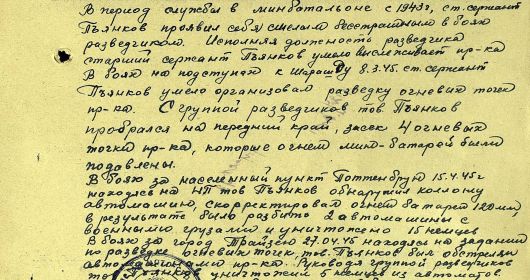 В период службы в минбатальоне с 1943г, ст. сержант
Пъянков проявил себя смелым бесстрашным в боях
разведчиком. Исполняя должность разведчика
старший сержант Пъянков умело выслеживает пр-ка
В боях на подступах к Шарашду 8.3.45. ст. сержант
Пъянков умело организовал разведку огневых точек
пр-ка. С группой разведчиков тов. Пъянков
пробрался на передний край, засек 4 огневых
точки пр-ка, которые огнем мин-батарей были
подавлены.
В боях за населенный пункт Поттенбрун 15.4.45г
находясь на НП тов Пъянков обнаружил колонну
автомашин, скорректировал огнем батарей 120мм,
в результате было разбито 2 автомашины с
военными грузами и уничтожено 15 немцев
В боях за город Трайзен 27.04.45 находясь на задании
по разведке огневых точек, тов. Пъянков был обстрелян
автоматчиками пр-ка. Руководя группой разведчиков
тов. Пъянков уничтожил 5 немцев из автомата.